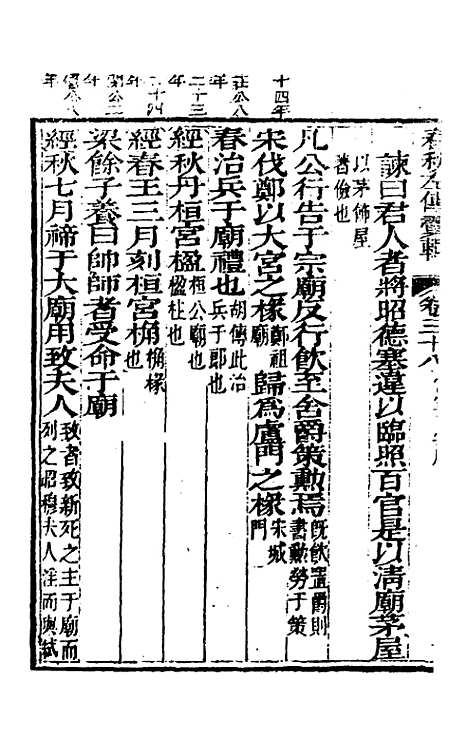 諫曰君人者將昭德塞違以臨照百官是以清廟茅屋
以茅飾屋
著儉也
凡公行告于宗廟反行飲至舍爵策勳焉旣飲置爵則
書勲勞于策
十四年
宋伐鄭以大宮之椽鄭祖
廟
歸爲盧門之椽宋城
門
莊公八
年
春治兵于廟禮也胡傳此治
兵于郎也
二十三
年
經秋丹桓宮楹桓公廟也
楹柱也
二十四
年
經春王三月刻桓宮桷桷椽
也
閔公二
年
梁餘子養曰帥師者受命于廟
年
經秋七月禘于大廟用致夫人致者致新死之主于廟而
列之昭穆夫人淫而與弑